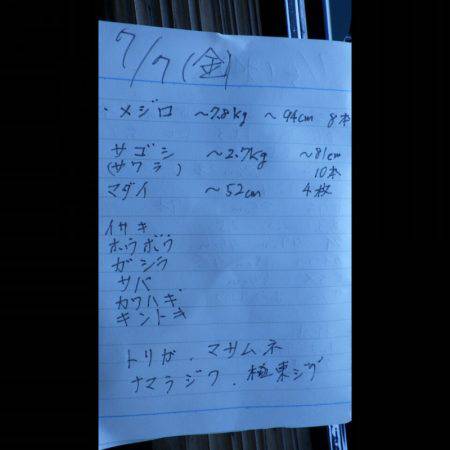 7/7(金)
・メジロ ~7.8kg ~94cm 8本
サゴシ ~2.7kg ~81cm
(サワラ) 10本
マダイ ~52cm 4枚
イサキ
ホウボウ
ガシラ
サバ
カワハギ
キントキ
トリガ、マサムネ
ナマラジワ、極東ジグ